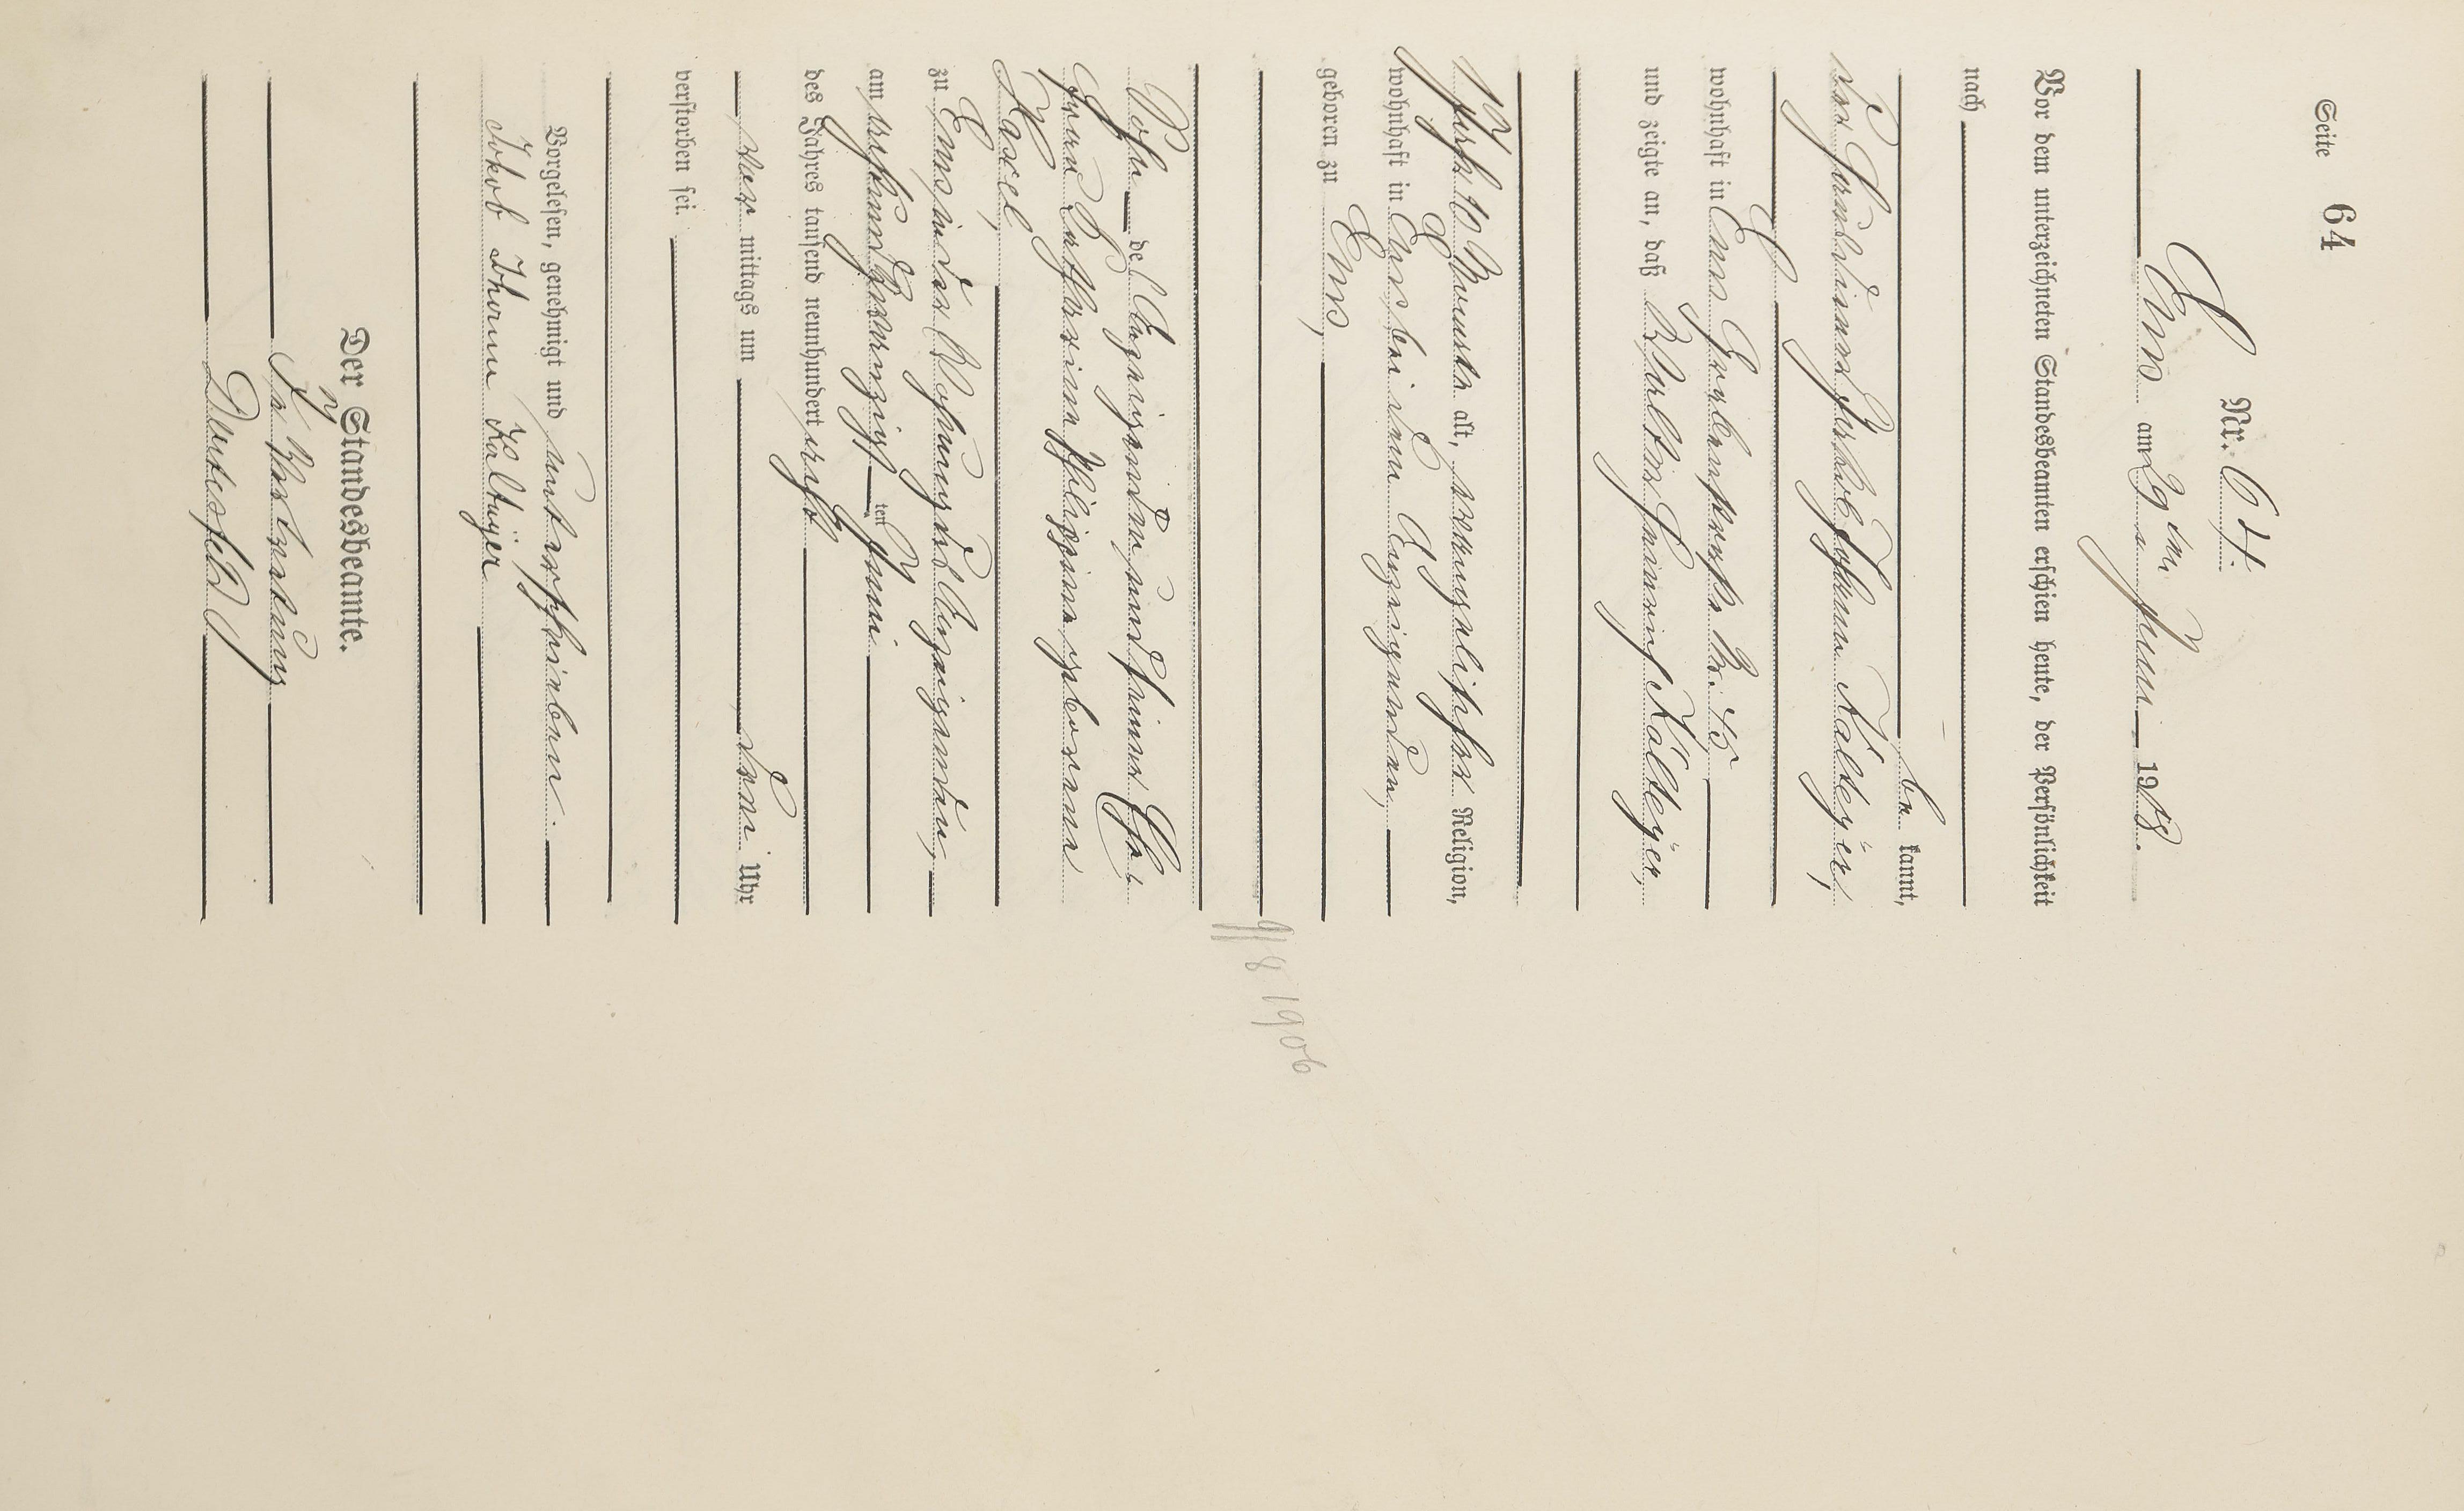 Seite 64
Nr. 64.
Ems am 29ten Juni 1908.
Vor dem unterzeichneten Standesbeamten erschien heute, der Persönlichkeit
nach
be kannt,
der Jakob Johann Kaltwijer,
wohnhaft in Ems Nr. 45
und zeigte an, daß Walter Kaltwijer,
10 Monate alt, evangelischer Religion,
wohnhaft in Ems bei dem Anzeigenden,
geboren zu Ems,
9/8 1906
Sohn des Anzeigenden und seiner Ehe-
frau Katharina Philippine geborene
Haxel,
zu Ems, in der Wohnung des Anzeigenden,
am achtundzwanzigsten Juni
des Jahres tausend neunhundert acht
vor mittags um drei Uhr
verstorben sei.
Vorgelesen, genehmigt und unterschrieben.
Jakob Johann Kaltwijer
Der Standesbeamte.
In Vertretung